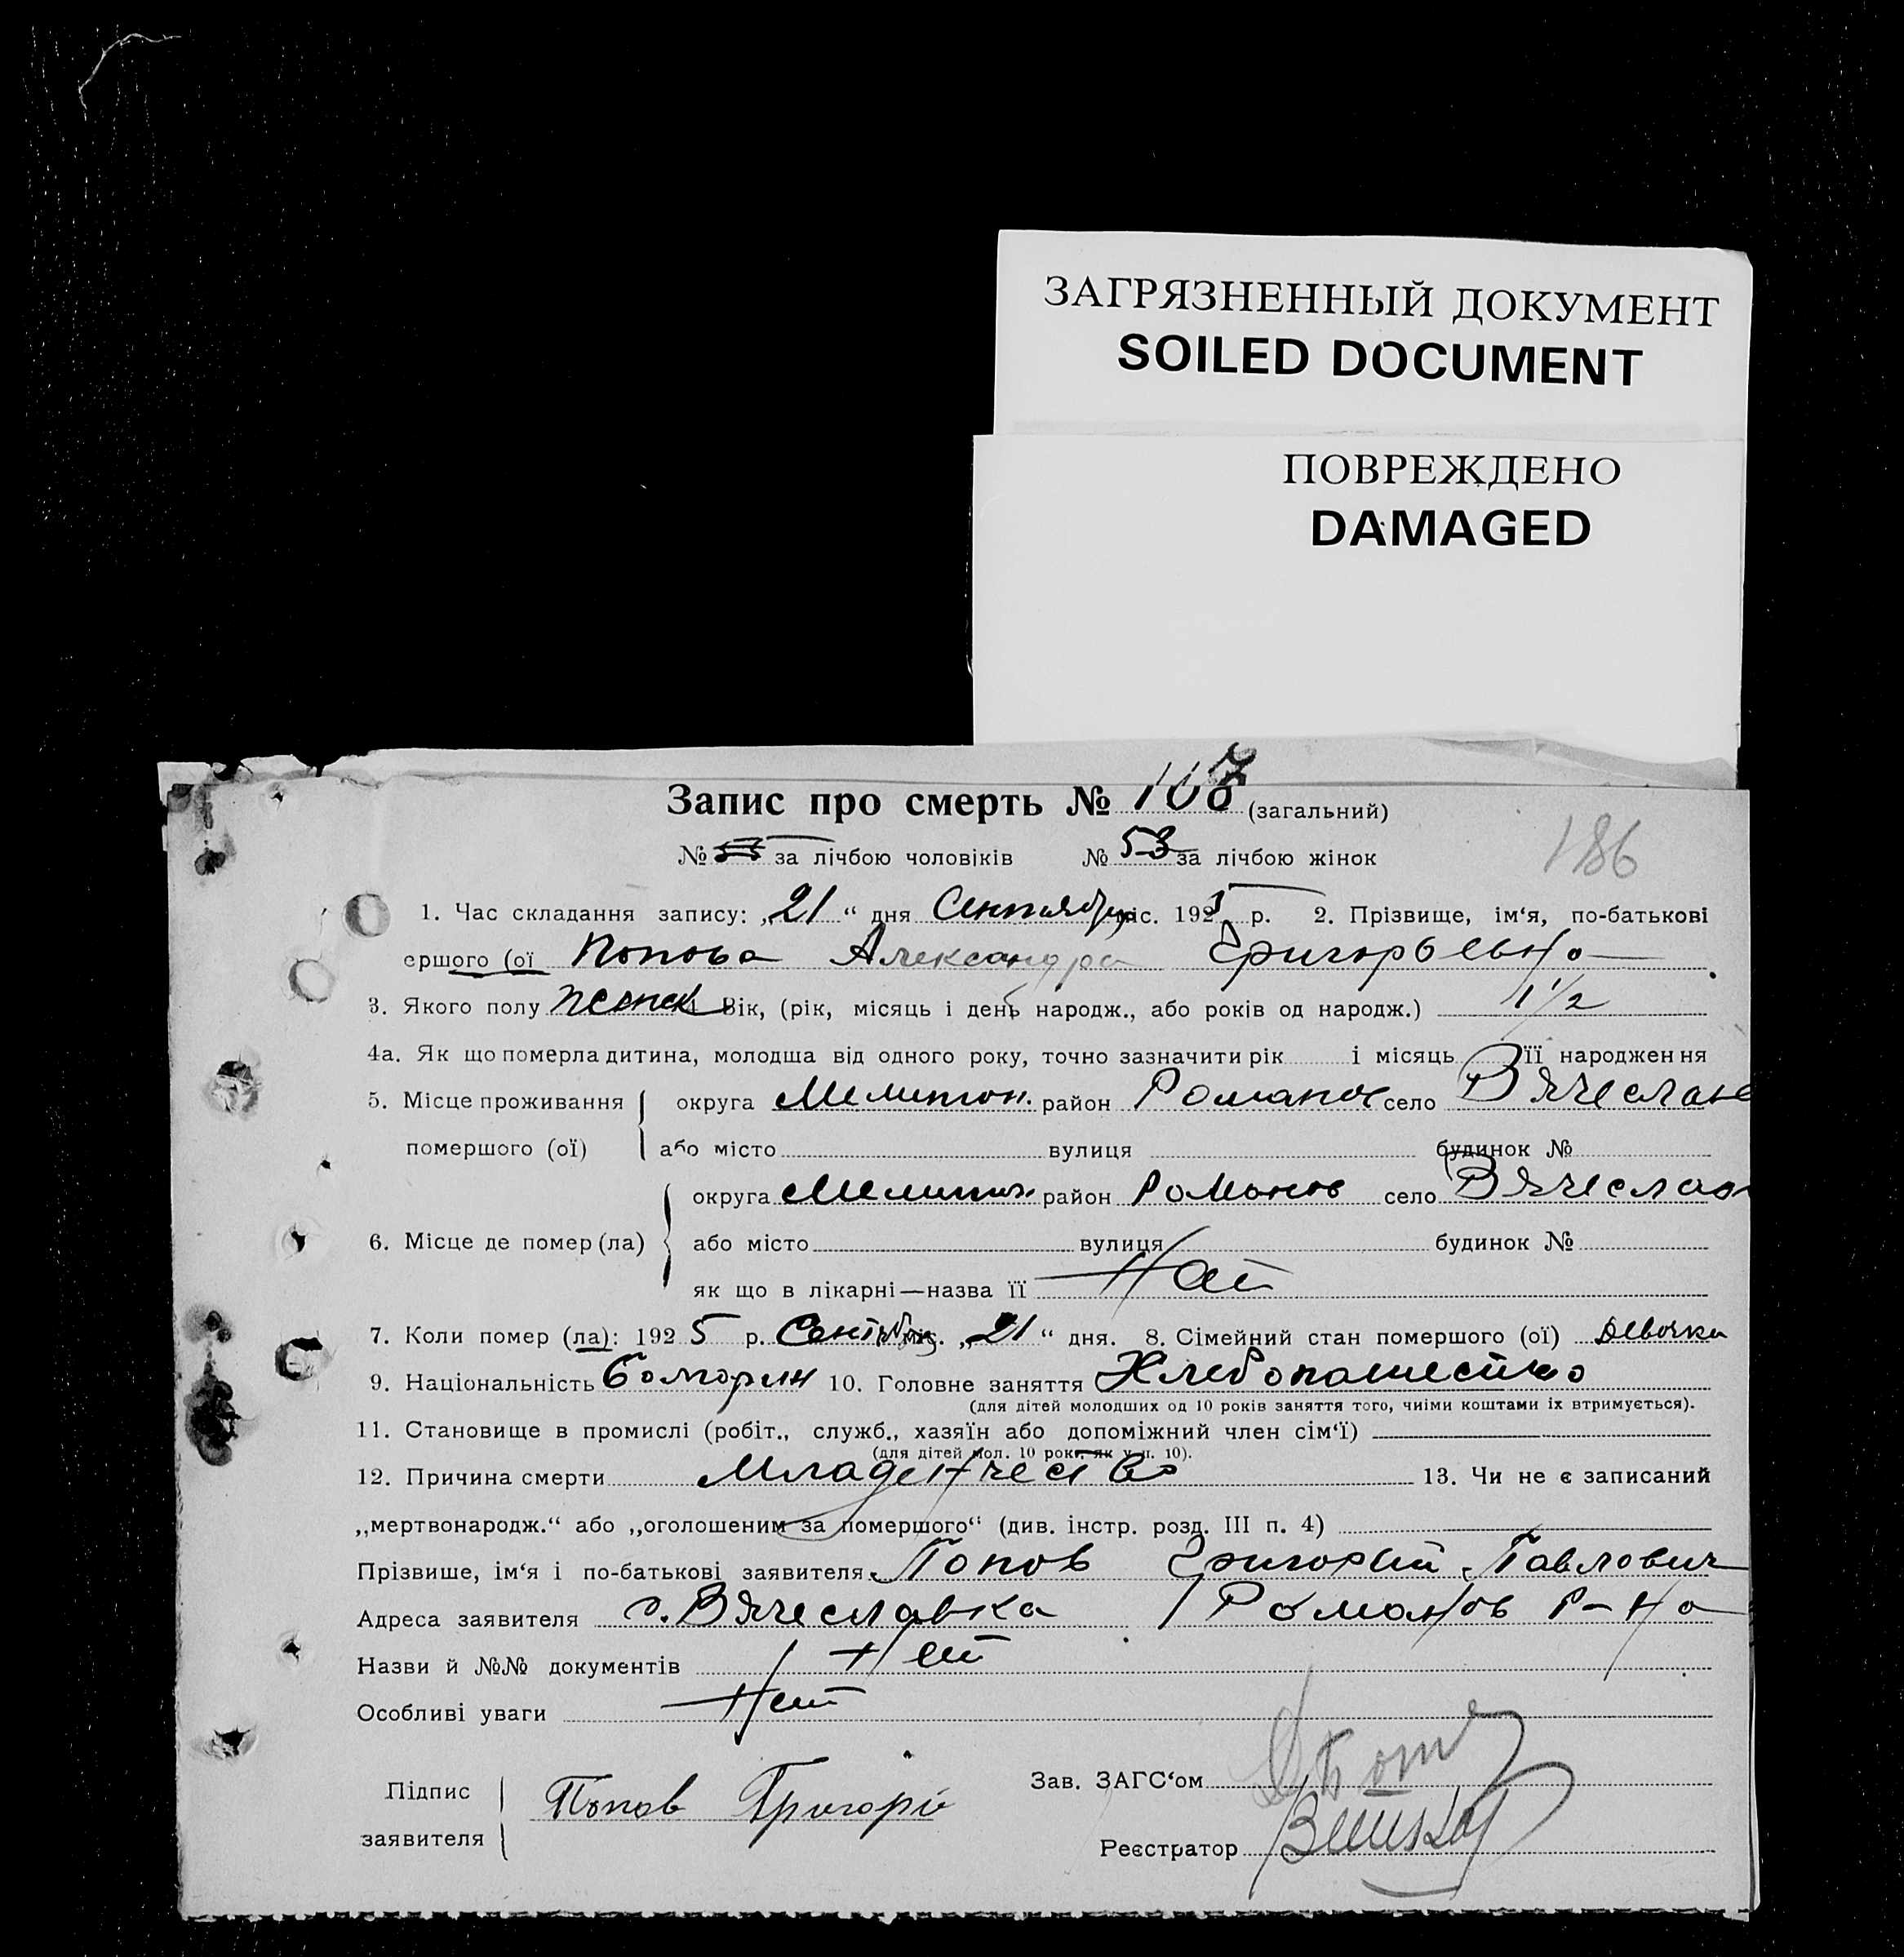 ЗАГРЯЗНЕННЫЙ ДОКУМЕНТ
SOILED DOCUMENT
ПОВРЕЖДЕНО
DAMAGED
Запис про смерть № 107 (загальний)
№ за лічбою чоловіків № 53 за лічбою жінок
186
1. Час складання запису: „21“ дня Сентября міс. 1925 р. 2. Прізвище, ім‘я, по-батькові
ершого (ої Попова Александра Григорьевна
3. Якого полу женск Вік, (рік, місяць і день народж., або років од народж.) 1 1/2
4а. Як що померла дитина, молодша від одного року, точно зазначити рік і місяць її народження
5. Місце проживання округа Мелитоп. район Романов село Вячеславк
помершого (ої) або місто вулиця будинок №
округа Мелитоп. район Романов село Вячеслав
6. Місце де помер (ла) або місто вулиця будинок №
як що в лікарні—назва її Нет
7. Коли помер (ла): 1925 р. Сентябр міс. „21“ дня. 8. Сімейний стан помершого (ої) девочка
9. Національність Болгорин 10. Головне заняття Хлебопашество
(для дітей молодших од 10 років заняття того, чиїми коштами їх втримується).
11. Становище в промислі (робіт., служб., хазяїн або допоміжний член сім‘ї)
(для дітей мол. 10 рок. як у п. 10).
12. Причина смерти Младенчество 13. Чи не є записаний
„мертвонародж.“ або „оголошеним за помершого“ (див. інстр. розд. III п. 4)
Прізвише, ім‘я і по-батькові заявителя Попов Григорий Павлович
Адреса заявителя с. Вячеславка Романов р-на
Назви й №№ документів Нет
Особливі уваги Нет
Зав. ЗАГС‘ом
Підпис Попов Григорій
заявителя
Реєстратор